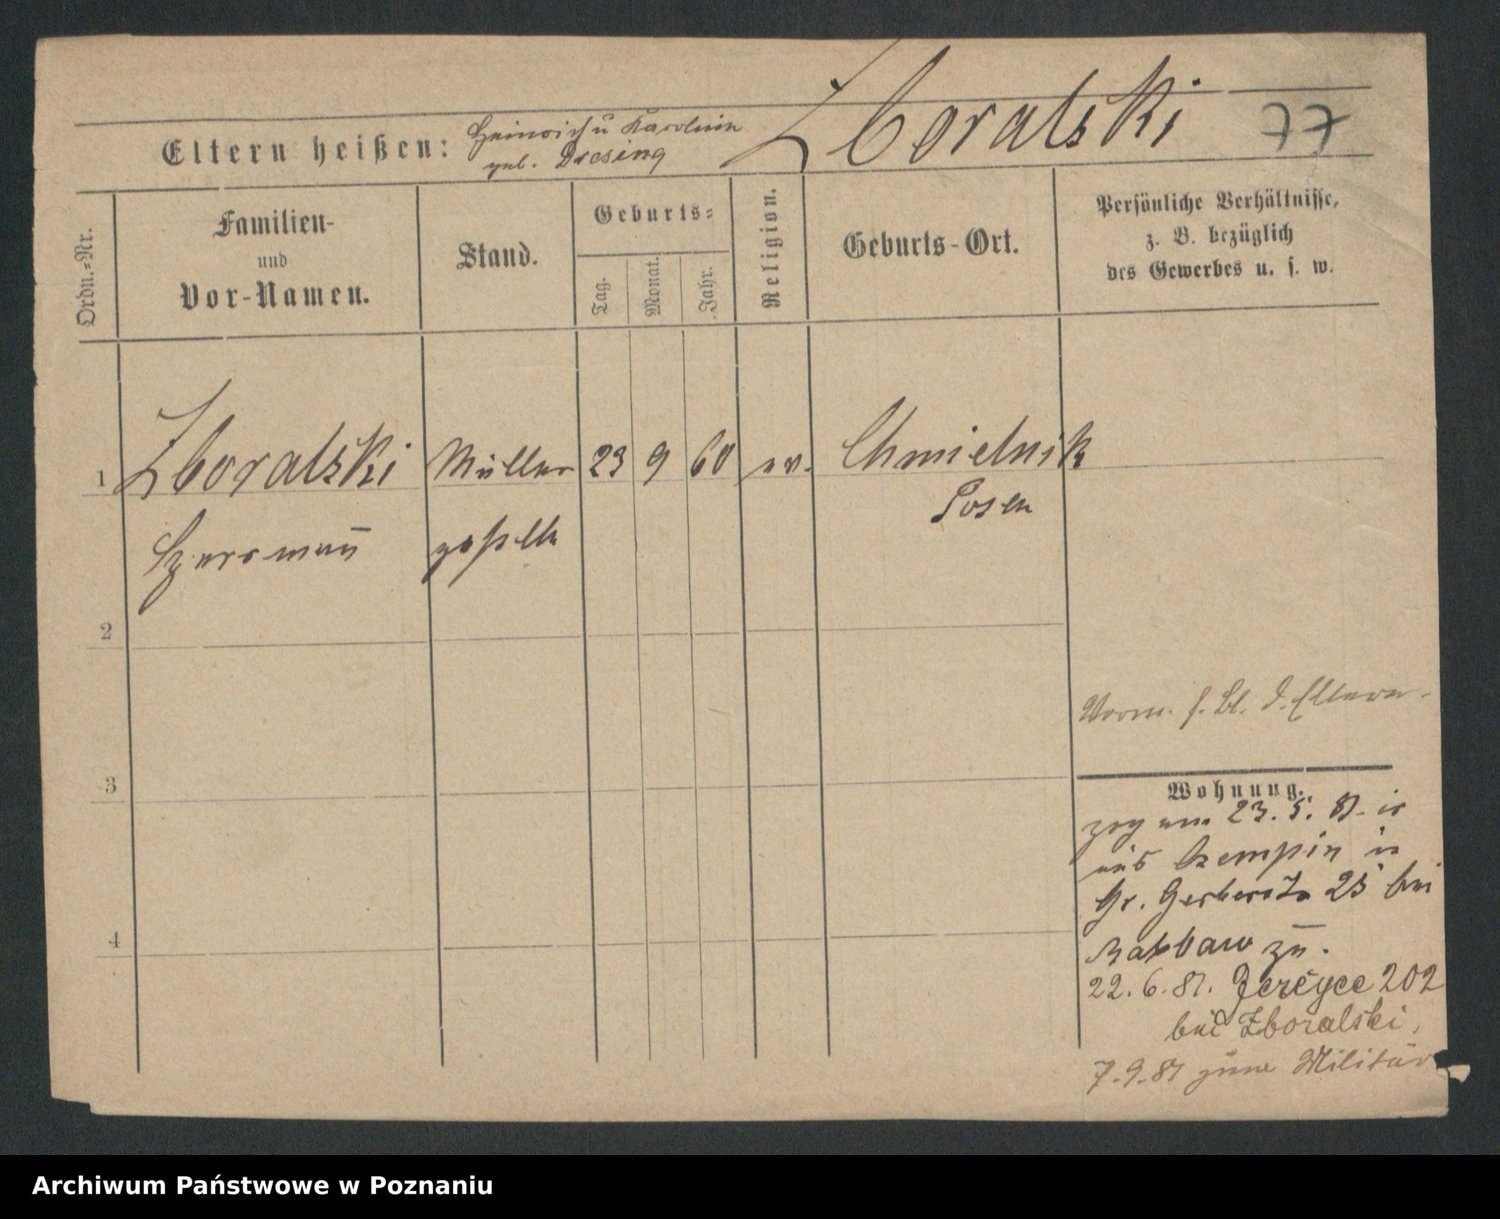 Zboralski 77
Eltern heißen: Heinrich u Karoline
geb. Dresing
Ordn.=Nr.
Familien-
und
Vor-Namen.
Stand.
Geburts=
Tag.
Monat.
Jahr.
Religion.
Geburts-Ort.
Persönliche Verhältnisse,
z. B. bezüglich
des Gewerbes u. s. w.
1 Zboralski Müller 23 9 60 ev. Chmielnik
Posen
Herrmañ geselle
2
3
4
Vorm. s. Bl. d. Eltern.
Wohnung.
zog am 23. 5. 81. 
aus Czempin in
Gr. Gerberstr 25 bei
zu.
22. 6. 81. Jerčyce 202
bei Zboralski,
7. 9. 81 zum Militär
Archiwum Państwowe w Poznaniu